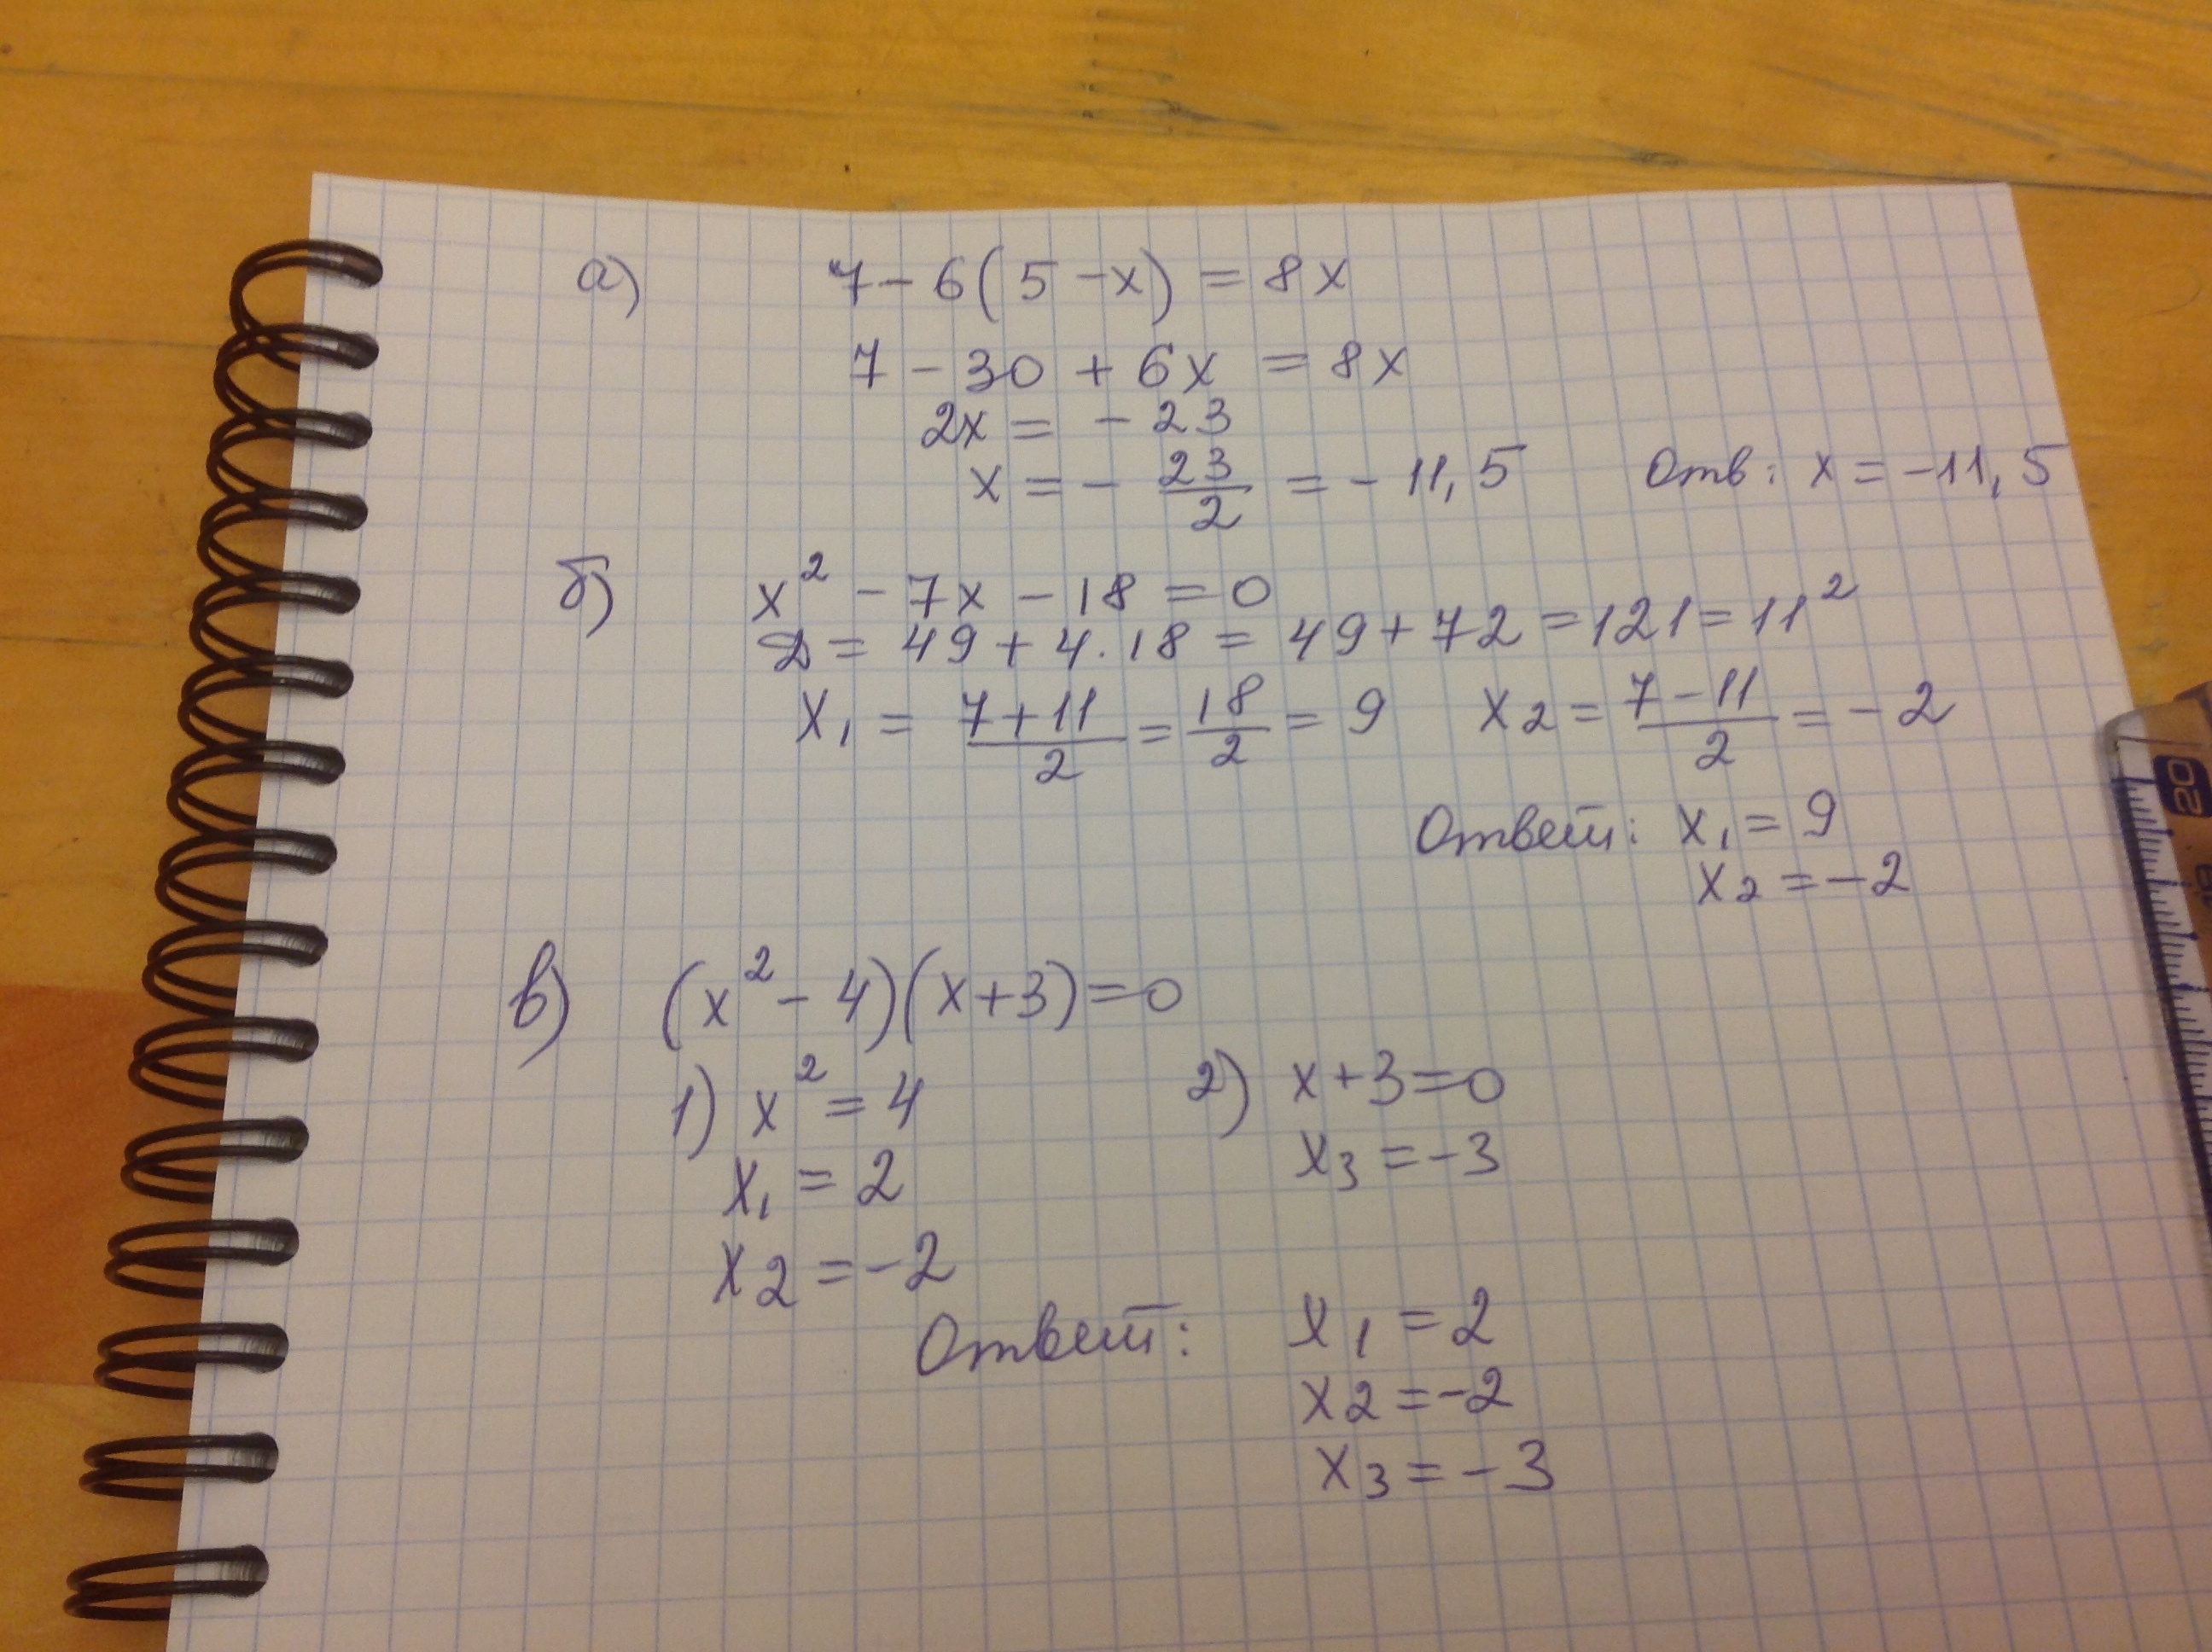 а) 7 - 6(5 - x) = 8x
7 - 30 + 6x = 8x
2x = - 23
x = - 23/2 = - 11,5 Отв: x = -11,5
б) x² - 7x - 18 = 0
D = 49 + 4 · 18 = 49 + 72 = 121 = 11²
x₁ = (7 + 11)/2 = 18/2 = 9 x₂ = (7 - 11)/2 = - 2
Ответ: x₁ = 9
x₂ = -2
в) (x² - 4)(x + 3) = 0
1) x² = 4 2) x + 3 = 0
x₁ = 2 x₃ = -3
x₂ = -2
Ответ: x₁ = 2
x₂ = -2
x₃ = -3
20